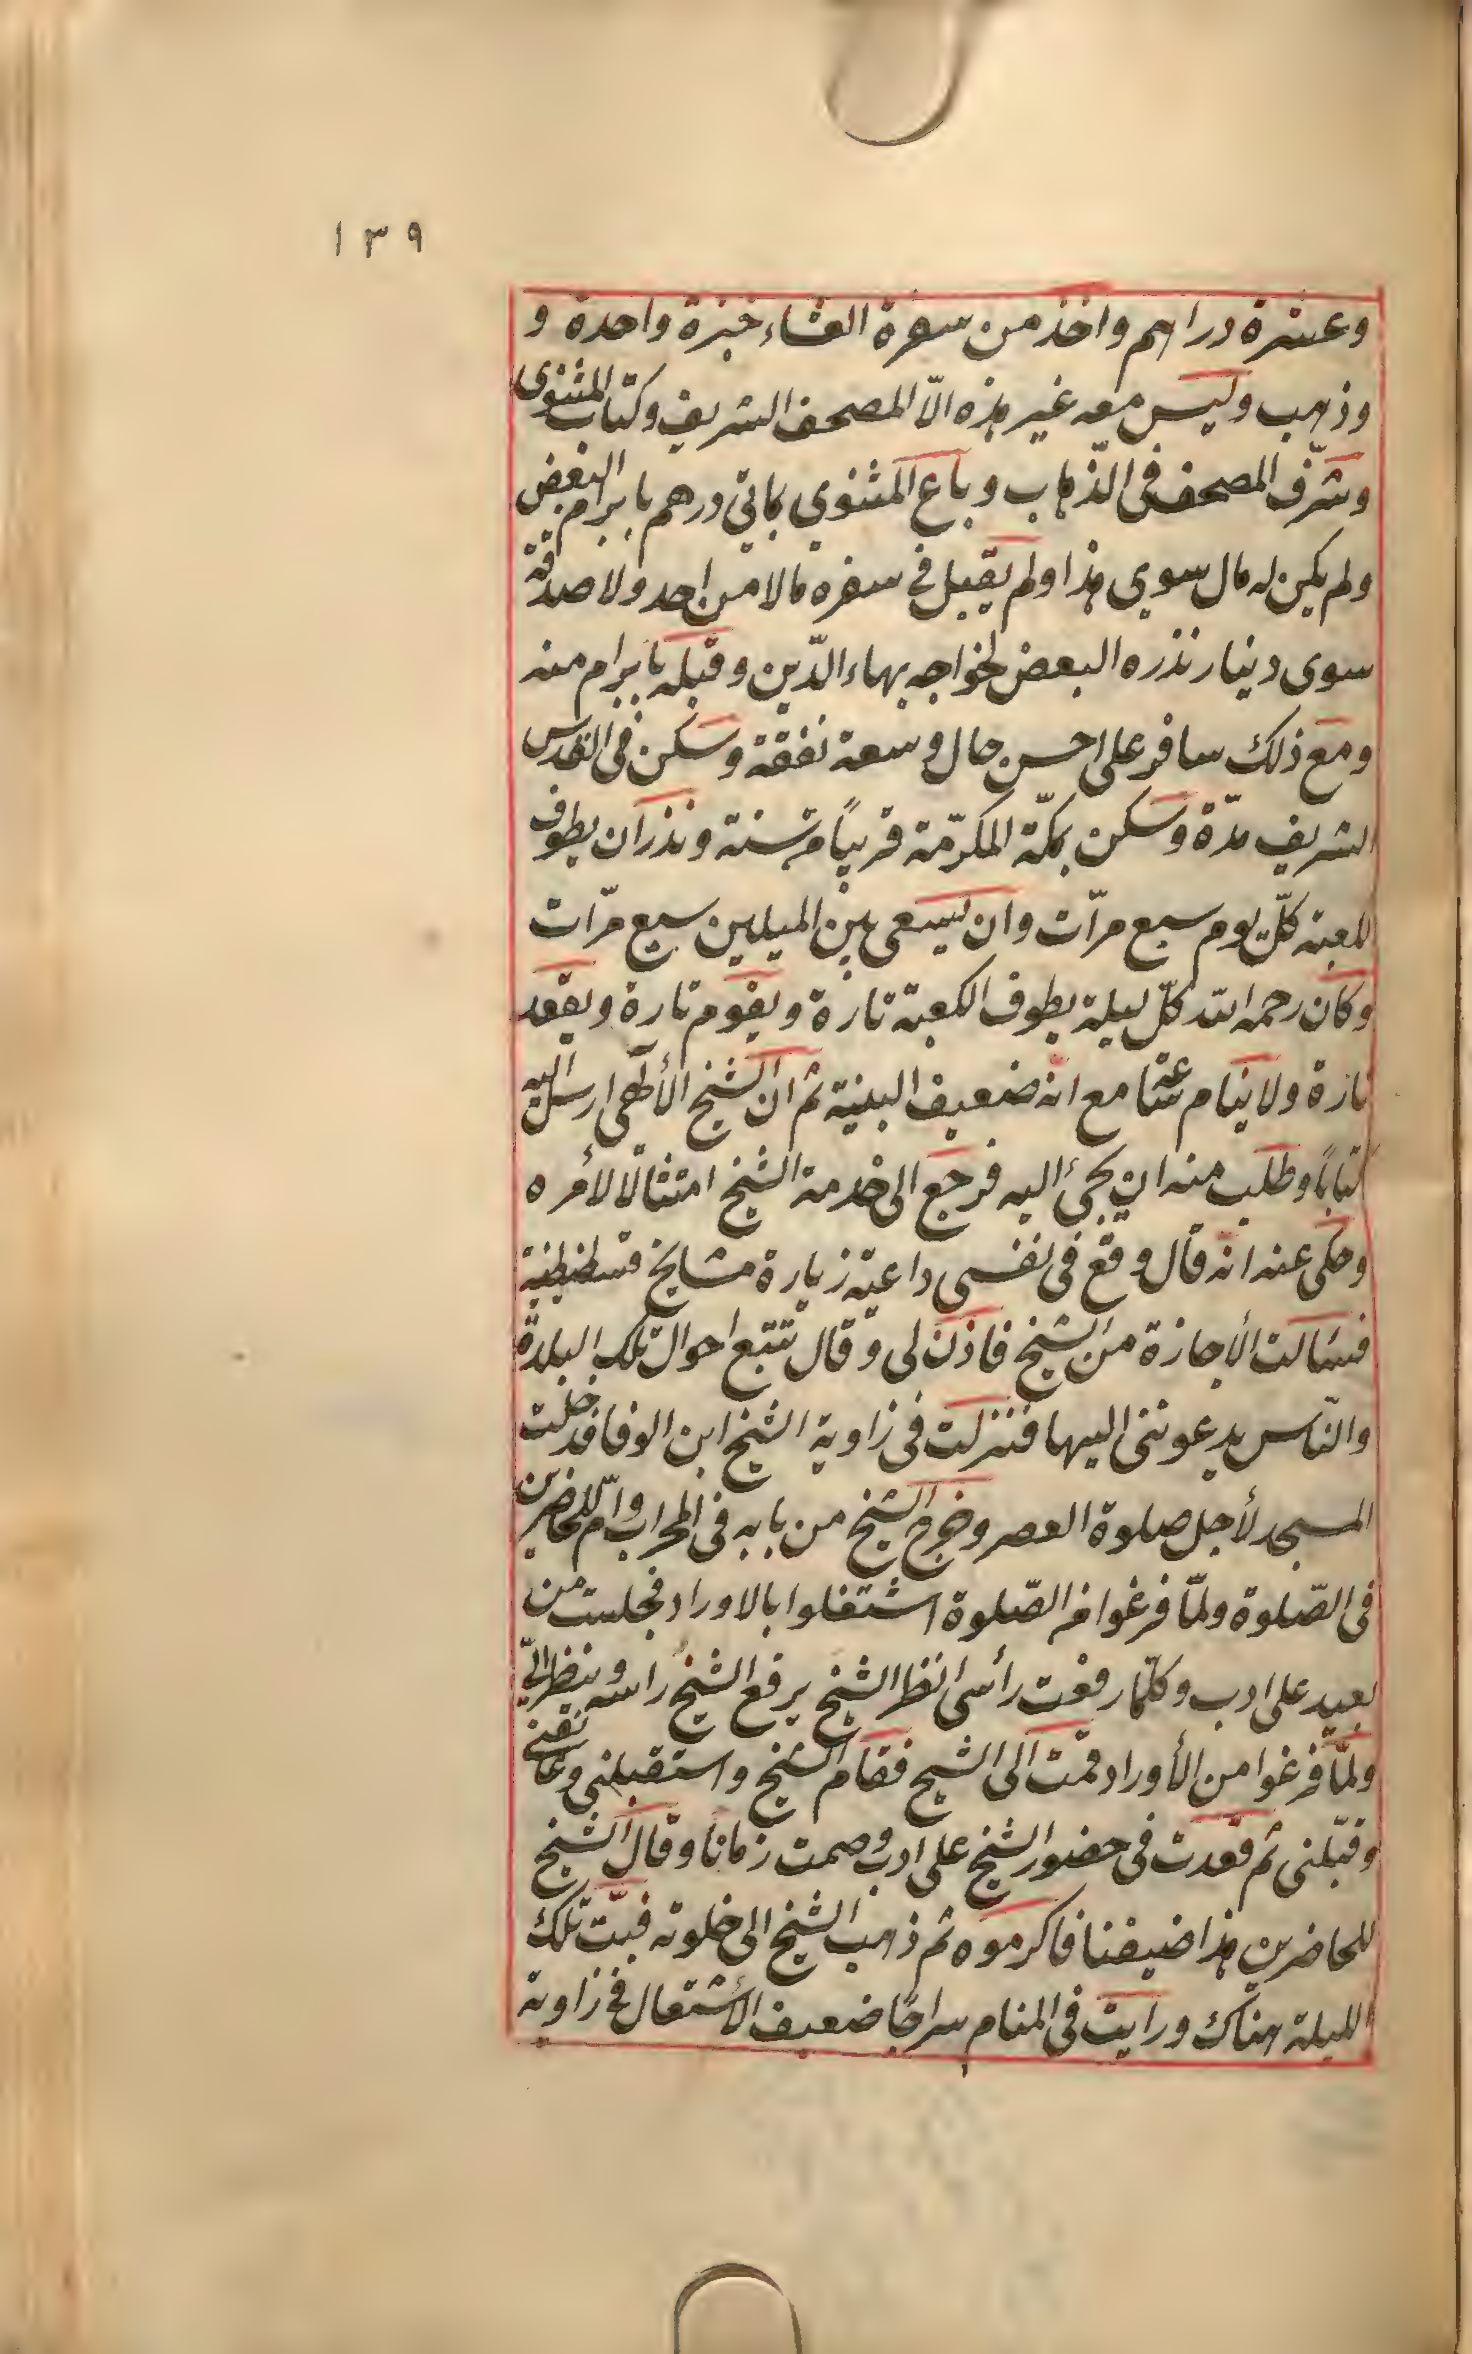 ١٣٩
وعشرة دراهم واخذ من سفرة العشاء خبزة واحدة و
وذهب وليس معه غير هذه الاّ المصحف الشريف وكتاب المثنوى
وسُرّف المصحف فى الذّهاب وباع المثنوي بمائتي درهم بابرام البعض
ولم يكن له مال سوي هذا ولم يقبل في سفره مالا من احد ولا صدقة
سوى دينار نذره البعض لخواجه بهاء الدّين وقبله بابرام منه
ومع ذلك سافر على احسن حال وسعة نفقة وسكن فى القدس
الشريف مدّة وسكن بمكّة المكرّمة قريباً من سنة ونذر ان يطوف
للعبة كلّ يوم سبع مرّات وان يسعى بين الميلين سبع مرّات
وكان رحمه الله كلّ ليلة يطوف الكعبة تارة ويقوم تارة ويقعد
تارة ولا ينام ساعة مع انه ضعيف البنية ثم ان الشيخ الألهي ارسل اليه
كتاباً وطلب منه ان يجئ اليه فرجع الى خدمة الشيخ امتثالاً لأمره
وحكى عنه انّه قال وقع فى نفسى داعية زيارة مشايخ قسطنطنية
فسئالت الأجازة من الشيخ فاذن لى وقال تتبع احوال تلك البلدة
والنّاس يدعوننى اليها فنزلت فى زاوية الشيخ ابن الوفا فدخلت
المسجد لأجل صلوة العصر وخرج الشيخ من بابه فى المحراب وامّ للحاضرين
فى الصّلوة ولمّا فرغوا من الصّلوة اشتغلوا بالاوراد فجلست من
بعيد على ادب وكلّما رفعت رأسى انظر الشيخ يرفع الشيخ راسه وينظر اليّ
ولمّا فرغوا من الأوراد قمت الى الشيخ فقام الشيخ واستقبلنى وعانقنى
وقبّلنى ثم قعدت فى حضور الشيخ على ادب وصمت زماناً وقال الشيخ
للحاضرين هذا ضيفنا فاكرموه ثم ذهب الشيخ الى خلوته فبتّ تلك
الليلة هناك ورايت فى المنام سراجًا ضعيف الأشتعال في زاوية